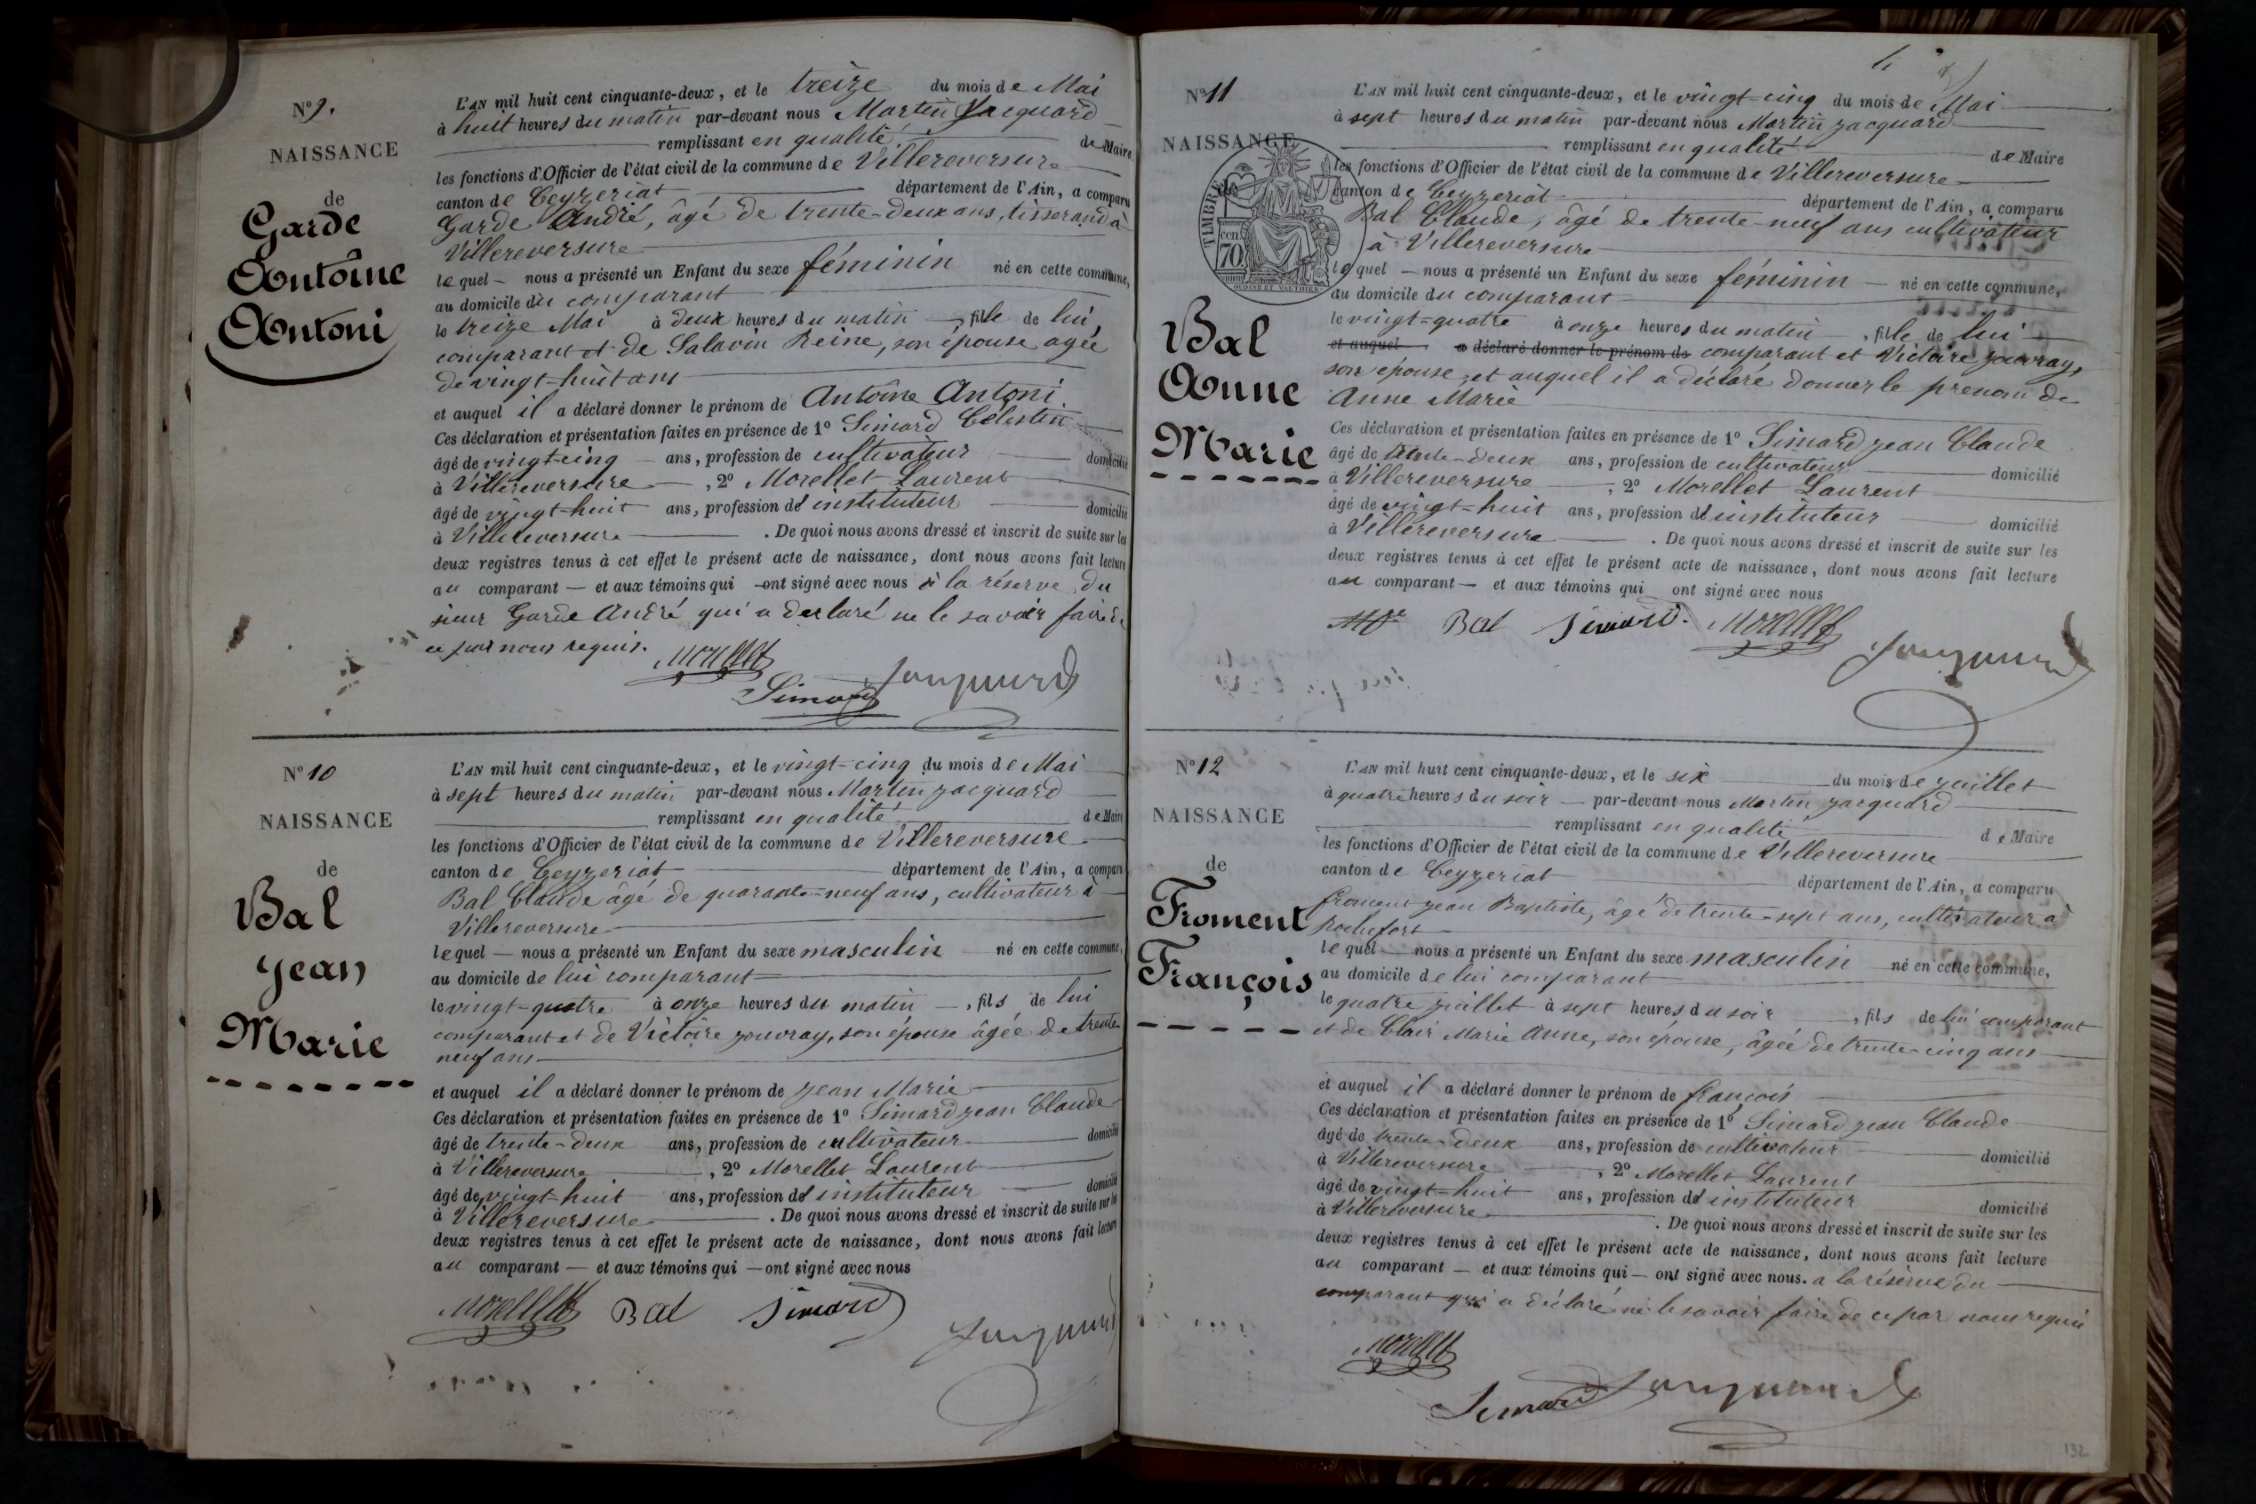 N° 9.
NAISSANCE
de
Garde
Antoine
Antoni
L'AN mil huit cent cinquante-deux, et le treize du mois de Mai
à huit heures du matin par-devant nous Martin Jacquard
remplissant en qualité de Maire
les fonctions d'Officier de l'état civil de la commune de Villereversure
canton de Ceyzeriat département de l'Ain, a comparu
Garde André, âgé de trente-deux ans, tisserand à
Villereversure
lequel nous a présenté un Enfant du sexe féminin né en cette commune,
au domicile du comparant
le treize Mai à deux heures du matin, fille de lui,
comparant et de Salavin Reine, son épouse agée
de vingt-huit ans
et auquel il a déclaré donner le prénom de Antoine Antoni.
Ces déclaration et présentation faites en présence de 1° Simard Célestin
âgé de vingt-cinq ans, profession de cultivateur domicilié
à Villereversure, 2° Morellet Laurent
âgé de vingt-huit ans, profession d'instituteur domicilié
à Villereversure. De quoi nous avons dressé et inscrit de suite sur les
deux registres tenus à cet effet le présent acte de naissance, dont nous avons fait lecture
au comparant et aux témoins qui ont signé avec nous à la réserve du
sieur Garde André qui a declaré ne le savoir faire de
ce par nous requis.
Morellet
Simard
Jacquard
N° 10
NAISSANCE
de
Bal
Jean
Marie
L'AN mil huit cent cinquante-deux, et le vingt-cinq du mois de Mai
à sept heures du matin par-devant nous Martin Jacquard
remplissant en qualité de Maire
les fonctions d'Officier de l'état civil de la commune de Villereversure
canton de Ceyzeriat département de l'Ain, a comparu
Bal Claude âgé de quarante-neuf ans, cultivateur à
Villereversure
lequel nous a présenté un Enfant du sexe masculin né en cette commune,
au domicile de lui comparant
le vingt-quatre à onze heures du matin, fils de lui
comparant et de Victoire Jouvray, son épouse âgée de trente
neuf ans
et auquel il a déclaré donner le prénom de Jean Marie
Ces déclaration et présentation faites en présence de 1° Simard Jean Claude
âgé de trente-deux ans, profession de cultivateur domicilié
à Villereversure, 2° Morellet Laurent
âgé de vingt-huit ans, profession d'instituteur domicilié
à Villereversure. De quoi nous avons dressé et inscrit de suite sur les
deux registres tenus à cet effet le présent acte de naissance, dont nous avons fait lecture
au comparant et aux témoins qui ont signé avec nous
Morellet Bal Simard
Jacquard
N° 11
NAISSANCE
de
TIMBRE
cen. 70
Bal
Anne
Marie
L'AN mil huit cent cinquante-deux, et le vingt-cinq du mois de Mai
à sept heures du matin par-devant nous Martin Jacquard
remplissant en qualité de Maire
les fonctions d'Officier de l'état civil de la commune de Villereversure
canton de Ceyzeriat département de l'Ain, a comparu
Bal Claude, âgé de trente-neuf ans cultivateur
à Villereversure
lequel nous a présenté un Enfant du sexe féminin né en cette commune,
au domicile du comparant
le vingt-quatre à onze heures du matin, fille de lui
et auquel a déclaré donner le prénom de comparant et Victoire Jouvray,
son épouse, et auquel il a déclaré donner le prenom de
Anne Marie
Ces déclaration et présentation faites en présence de 1° Simard Jean Claude
âgé de trente-deux ans, profession de cultivateur domicilié
à Villereversure, 2° Morellet Laurent
âgé de vingt-huit ans, profession d'instituteur domicilié
à Villereversure. De quoi nous avons dressé et inscrit de suite sur les
deux registres tenus à cet effet le présent acte de naissance, dont nous avons fait lecture
au comparant et aux témoins qui ont signé avec nous
Bal Simard. Morellet
Jacquard
N° 12
NAISSANCE
de
Froment
François
L'AN mil huit cent cinquante-deux, et le six du mois de Juillet
à quatre heures du soir par-devant nous Martin Jacquard
remplissant en qualité de Maire
les fonctions d'Officier de l'état civil de la commune de Villereversure
canton de Ceyzeriat département de l'Ain, a comparu
Froment Jean Baptiste, âgé de trente-sept ans, cultivateur à
Rochefort
lequel nous a présenté un Enfant du sexe masculin né en cette commune,
au domicile de lui comparant
le quatre Juillet à sept heures du soir, fils de lui comparant
et de Clair Marie Anne, son épouse, âgée de trente-cinq ans
et auquel il a déclaré donner le prénom de François
Ces déclaration et présentation faites en présence de 1° Simard Jean Claude
âgé de trente-deux ans, profession de cultivateur domicilié
à Villereversure, 2° Morellet Laurent
âgé de vingt-huit ans, profession d'instituteur domicilié
à Villereversure. De quoi nous avons dressé et inscrit de suite sur les
deux registres tenus à cet effet le présent acte de naissance, dont nous avons fait lecture
au comparant et aux témoins qui ont signé avec nous. a la réserve du
comparant qui a déclaré ne le savoir faire de ce par nous requis
Morellet
Simard Jacquard
132